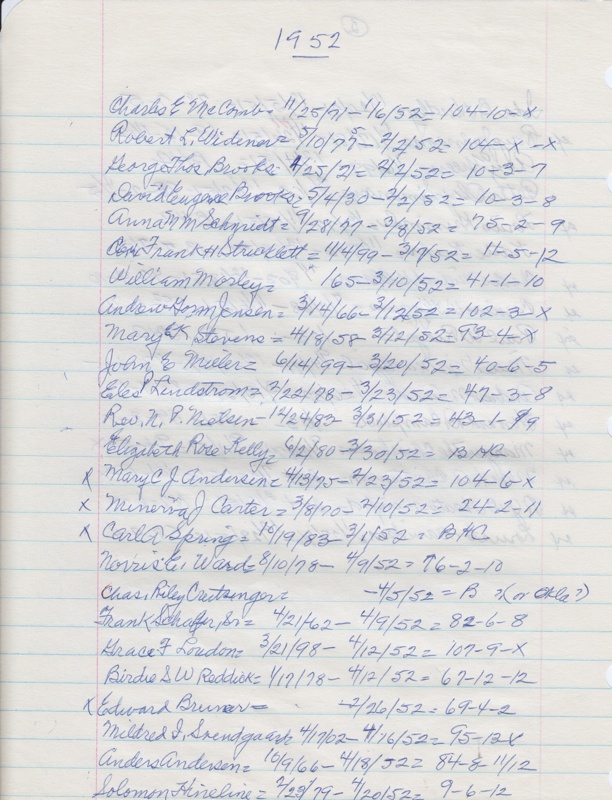 1952
Charles E McComb - 11/25/71 - 1/6/52 = 104-10-X
Robert L. Widener = 5/10/77 - 2/2/52 = 104-X-X
George Thos Brooks - 4/25/21 = 2/2/52 = 10-3-7
David Eugene Brooks = 5/4/30 - 2/2/52 = 10-3-8
Anna M M Schmidt = 9/28/77 - 3/8/52 = 75-2-9
Frank H Stricklett = 11/4/99 - 3/7/52 = 11-5-12
William Mosley = 165 - 3/10/52 = 41-1-10
Andrew Horm Jensen = 3/14/66 - 3/12/52 = 102-3-X
Mary K Stevens = 4/18/58 3/12/52 = 93-4-X
John E Miller = 6/14/99 - 3/20/52 = 40-6-5
Eles P Lindstrom = 2/22/78 - 3/23/52 = 47-3-8
Rev. N. P. Nielsen - 12/24/83 - 3/31/52 = 43-1-9
Elizabeth Rose Kelly = 6/2/80 - 3/30/52 = B HC
X Mary C J Andersen = 4/13/75 - 2/23/52 = 104-6-X
X Minerva J Carter = 3/8/70 - 2/10/52 = 24-2-11
X Carl A Spring = 10/19/83 - 3/1/52 = B HC
Norris E. Ward = 8/10/78 - 4/9/52 = 76-2-10
Chas. Riley Creitsinger = - 4/5/52 = B ? (or Okla?)
Frank Schafer, Sr = 4/21/62 - 4/9/52 = 82-6-8
Grace F Loudon = 3/21/98 - 4/12/52 = 107-9-X
Birdie S W Reddick = 1/17/78 - 4/12/52 = 67-12-12
X Edward Bruner = - 2/26/52 = 69-4-2
Mildred I. Svendgaard 4/17/02 - 4/16/52 = 95-12-X
Anders Andersen = 10/9/66 - 4/18/52 = 84-8 11/12
Solomon Hineline = 2/23/79 - 4/20/52 = 9-6-12